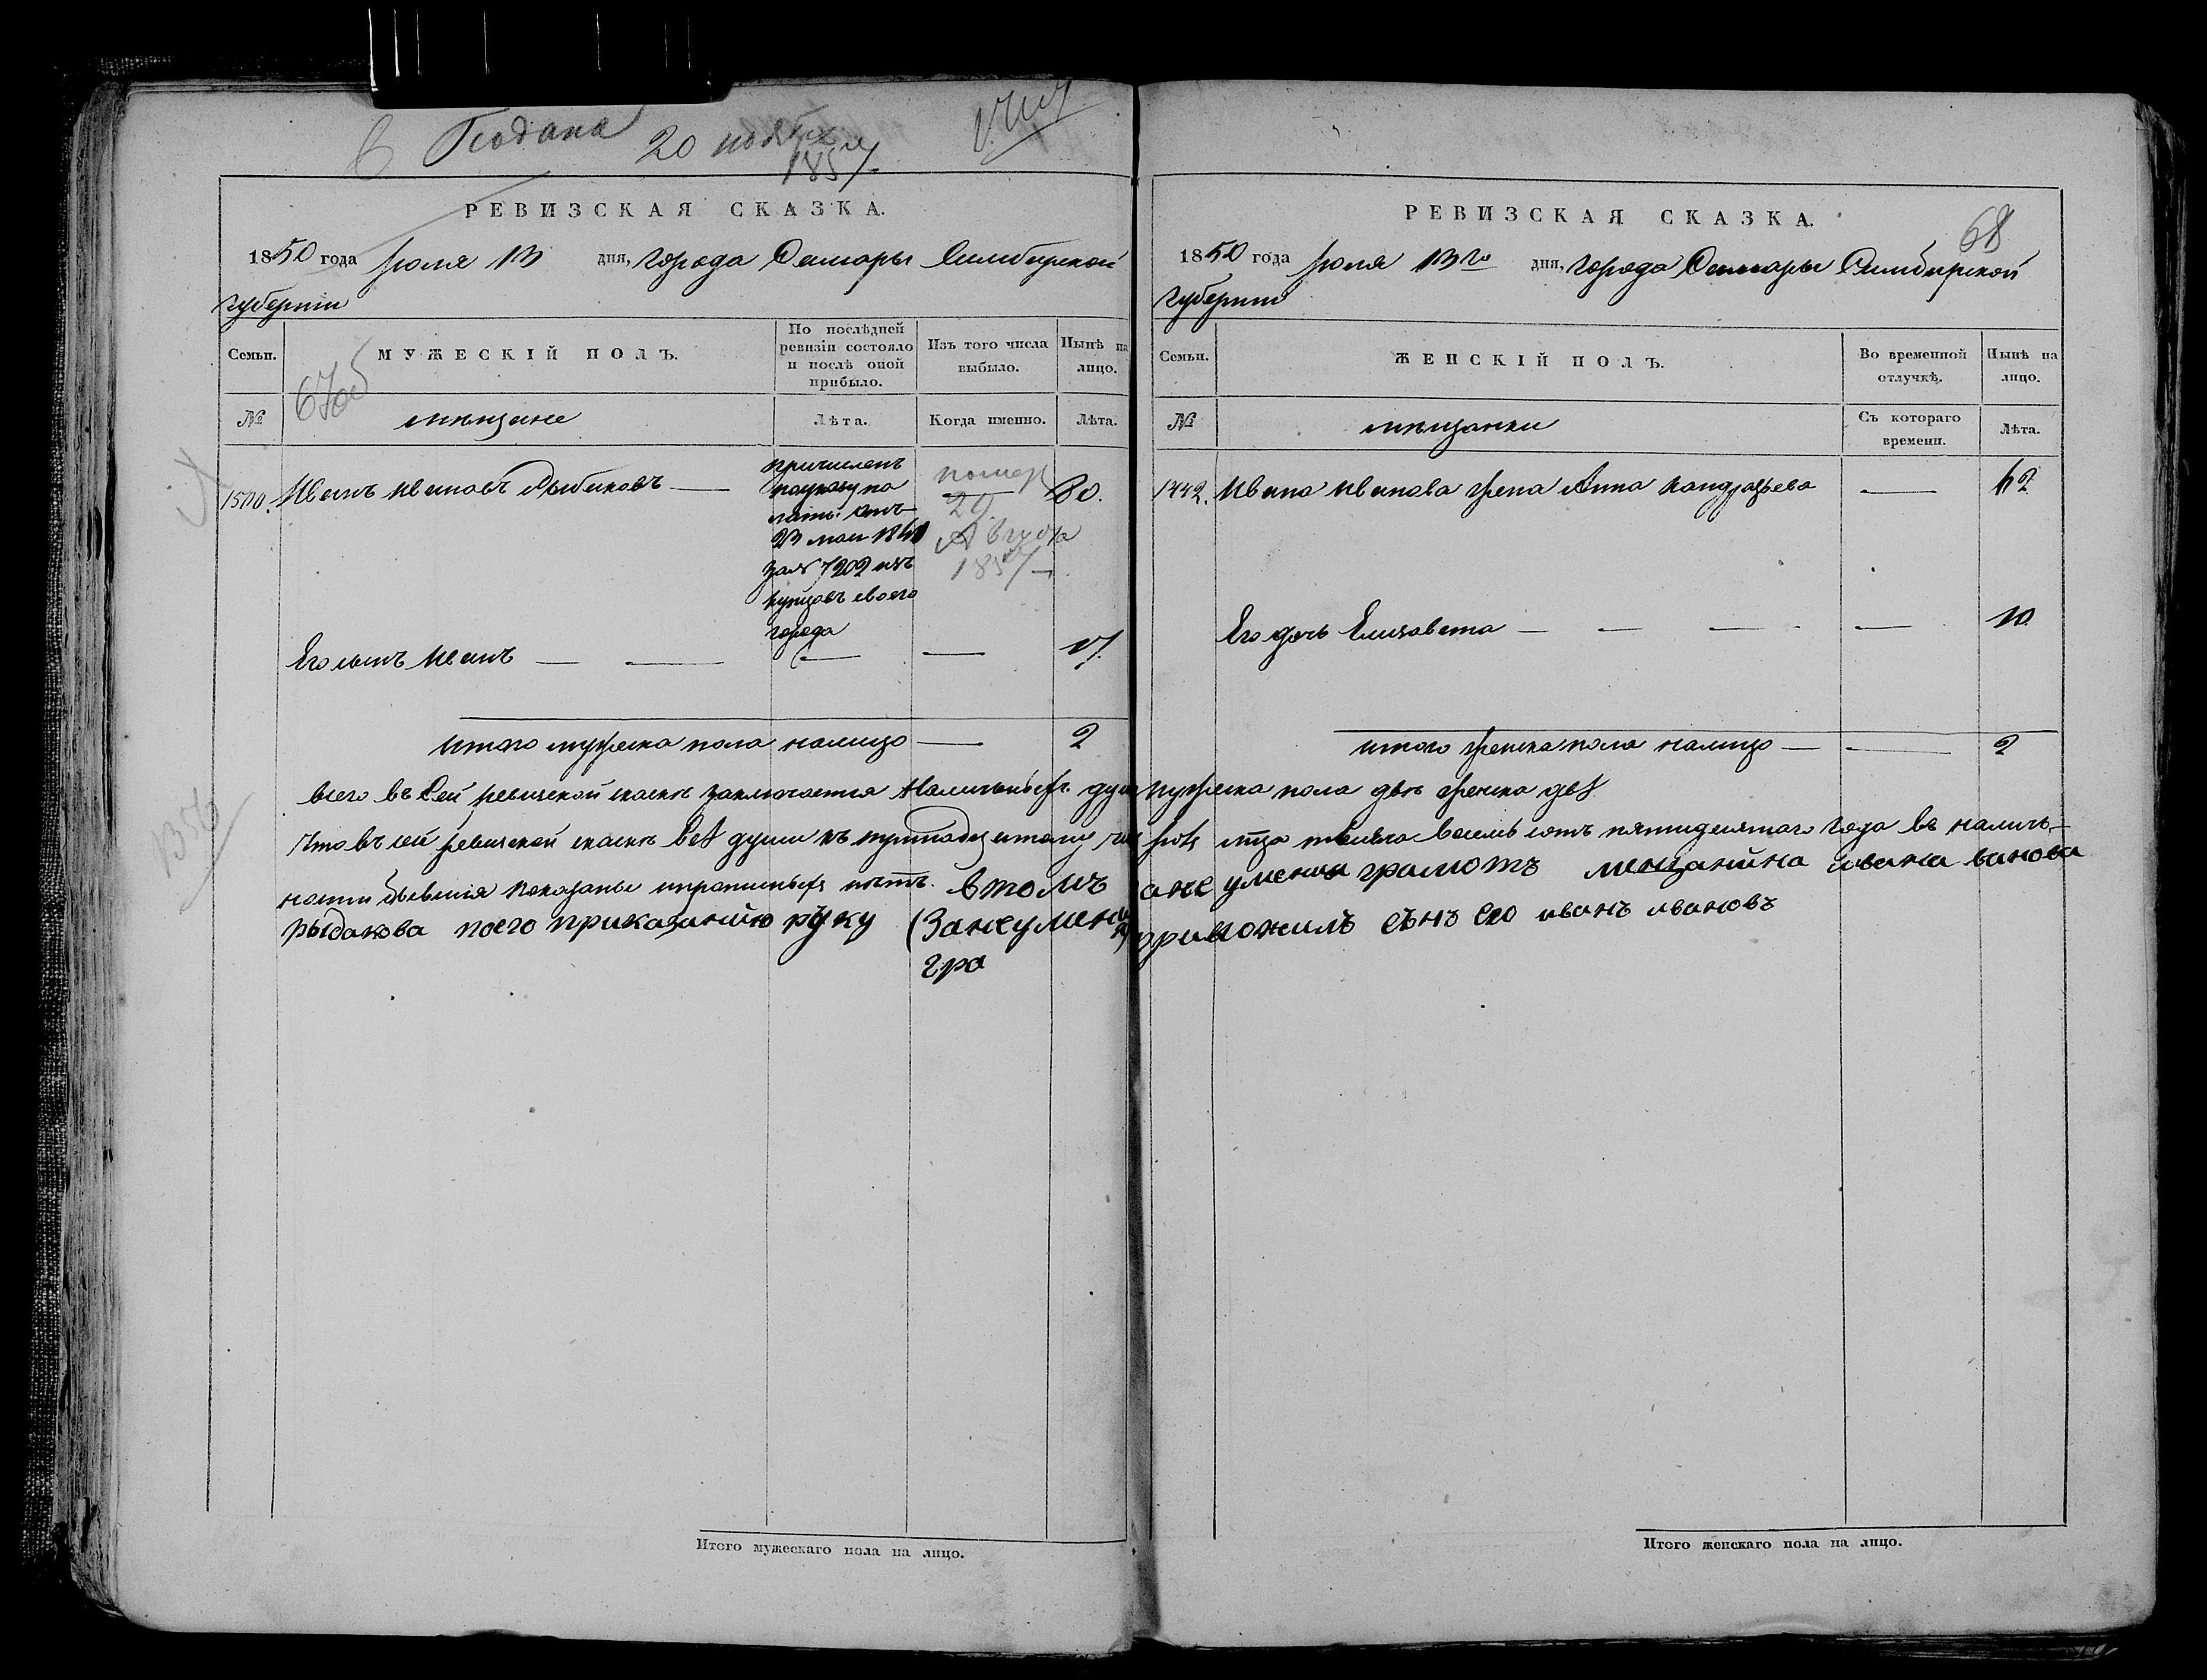 Подана 20 ноября
1857
РЕВИЗСКАЯ СКАЗКА.
1850 года Июля 13 дня, города Самары Симбирской
губернии
Семьи.
МУЖЕСКІЙ ПОЛЪ.
По послѣдней
ревизіи состояло
и послѣ оной
прибыло.
Изъ того числа
выбыло.
Нынѣ на
лицо.
67об
№
мещане
Лѣта.
Когда именно.
Лѣта.
1500. Иванъ Ивановъ Рыбаковъ —
причисленъ
по указу па
латы отъ
23 мая 184
за № 7202 изъ
купцовъ своего
города
помер
29
Августа
1857
60.
Его сынъ Иванъ — — — — 17.
Итого мужеска пола налицо — 2
1356
РЕВИЗСКАЯ СКАЗКА.
68
1850 года Июля 13го дня, города Самары Симбирской
губернии
Семьи.
ЖЕНСКІЙ ПОЛЪ.
Во временной
отлучкѣ.
Нынѣ на
лицо.
№
мещанки
Съ котораго
времени.
Лѣта.
1442. Ивана Иванова жена Анна Кандратьева — 62
Его дочь Елизавета — — — — 10
итого женска пола налицо — — 2
всего въ сей ревизской сказкѣ заключается наличныхъ душъ мужеска пола двѣ женска двѣ
что въ сей ревизской сказкѣ всѣ души къ тысяча восемь сотъ пятидесятаго года въ налич-
ности бывшия показаны и прописныхъ нѣтъ. втомъ зане умениемъ грамотъ мещанина ивана иванова
рыбакова поего приказанию руку (Занеумени
гра
приложилъ сынъ его иванъ ивановъ
Итого мужескаго пола на лицо.
Итого женскаго пола на лицо.